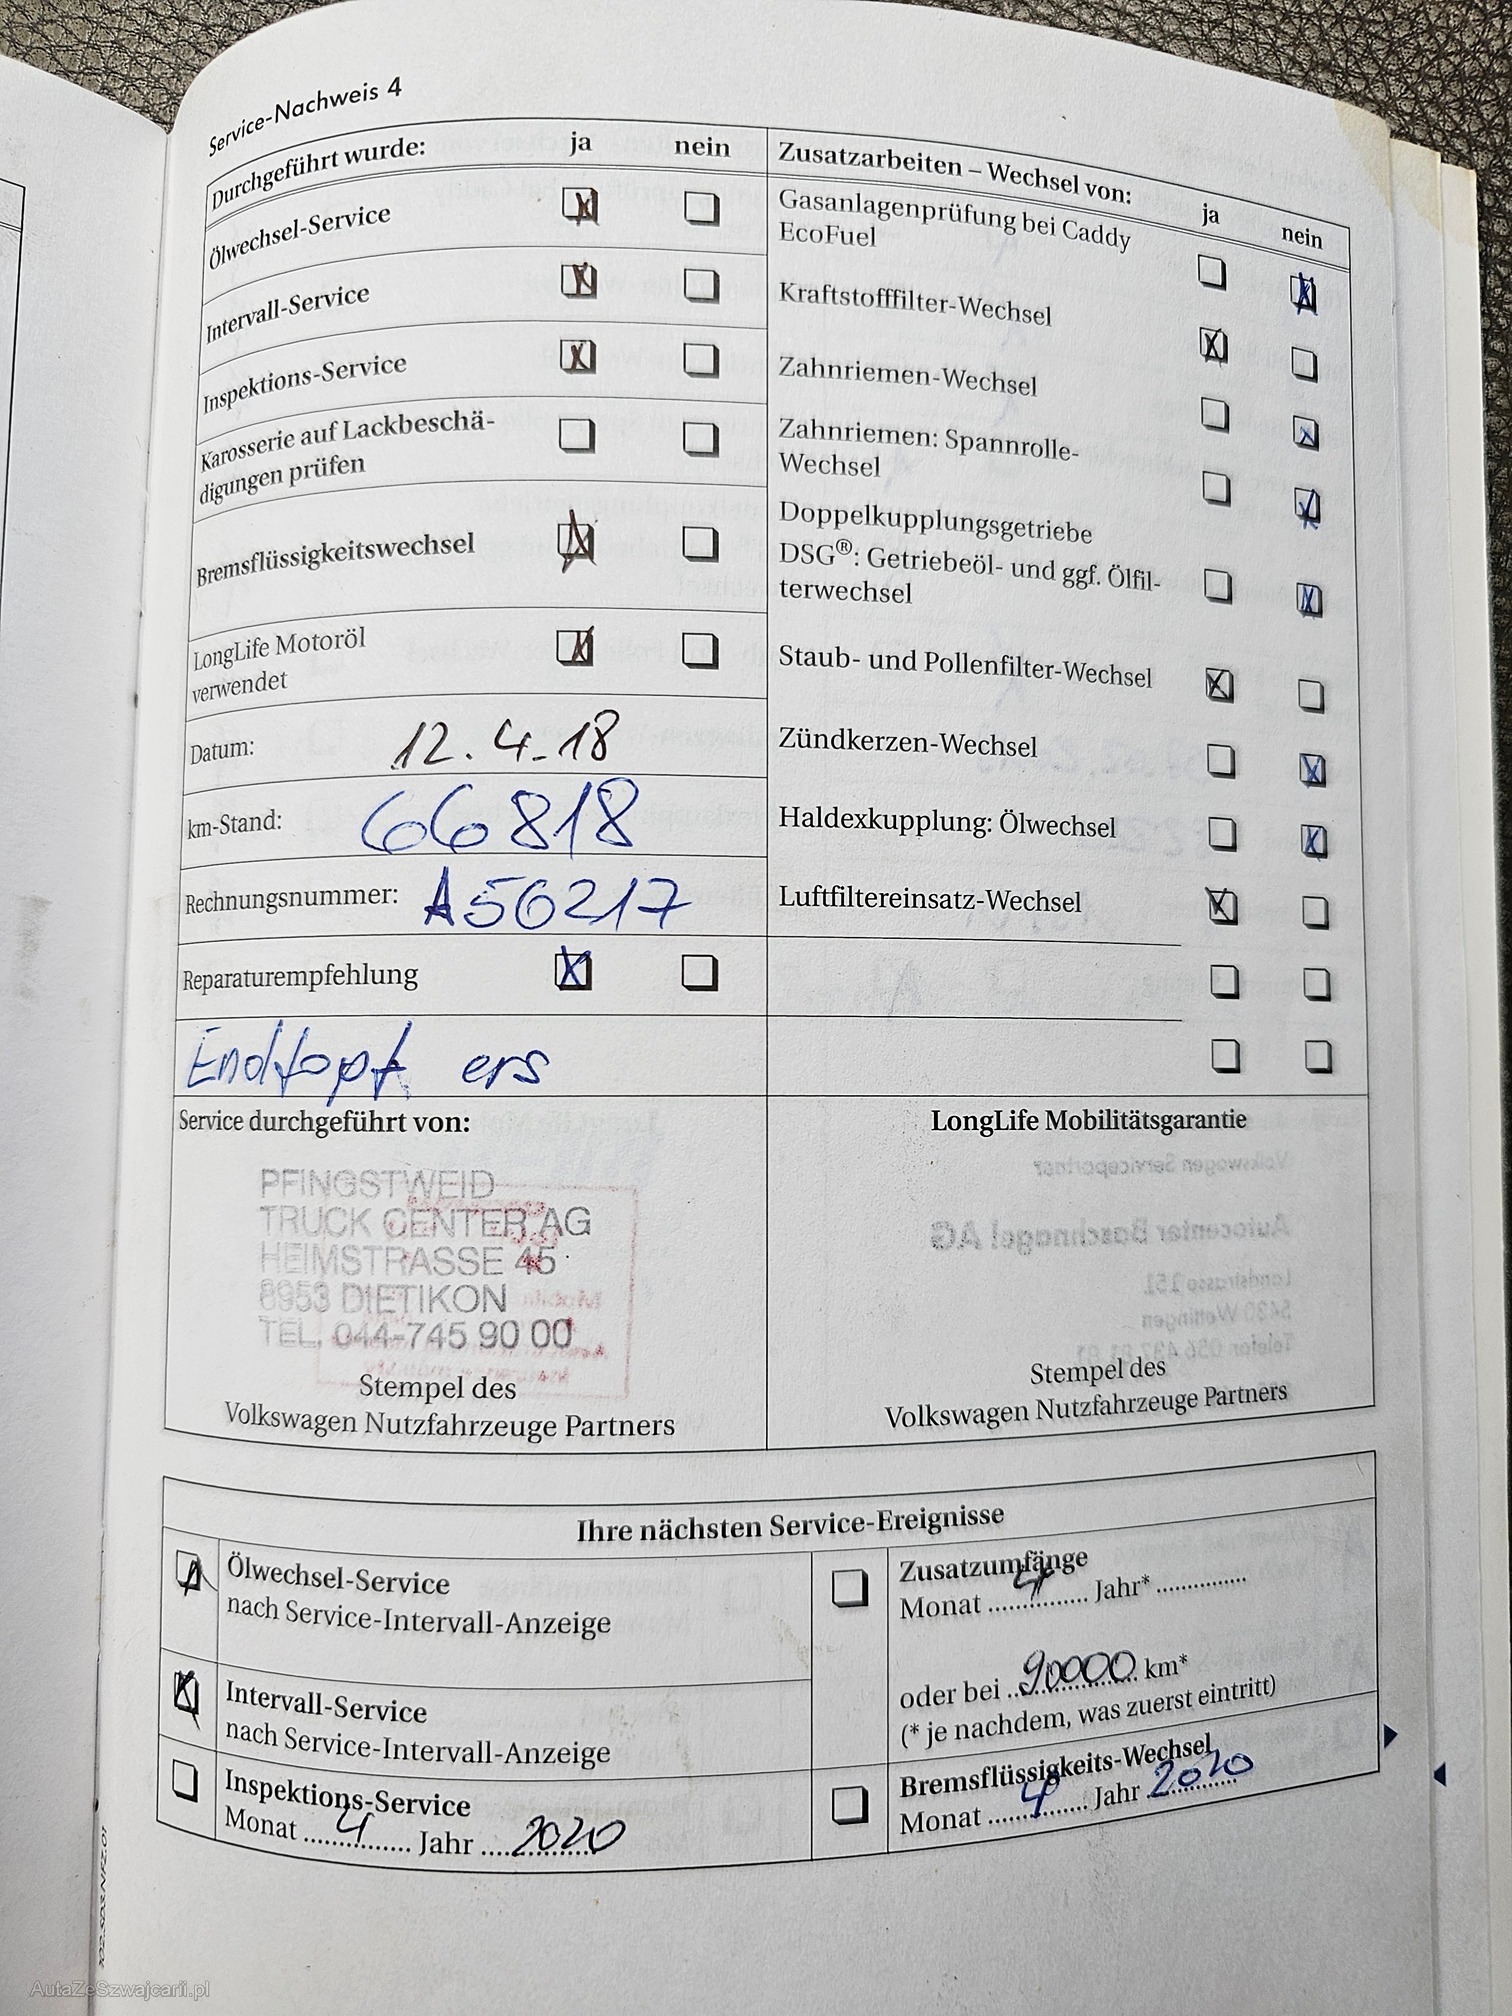 Service-Nachweis 4
Durchgeführt wurde: ja nein
Ölwechsel-Service
Intervall-Service
Inspektions-Service
Karosserie auf Lackbeschä-
digungen prüfen
Bremsflüssigkeitswechsel
LongLife Motoröl
verwendet
Datum: 12.4.18
km-Stand: 66818
Rechnungsnummer: A50217
Reparaturempfehlung
Endtopf ers
Zusatzarbeiten – Wechsel von: ja nein
Gasanlagenprüfung bei Caddy
EcoFuel
Kraftstoffffilter-Wechsel
Zahnriemen-Wechsel
Zahnriemen: Spannrolle-
Wechsel
Doppelkupplungsgetriebe
DSG®: Getriebeöl- und ggf. Ölfil-
terwechsel
Staub- und Pollenfilter-Wechsel
Zündkerzen-Wechsel
Haldexkupplung: Ölwechsel
Luftfiltereinsatz-Wechsel
Service durchgeführt von:
PFINGSTWEID
TRUCK CENTER AG
HEIMSTRASSE 45
8953 DIETIKON
TEL. 044-745 90 00
Stempel des
Volkswagen Nutzfahrzeuge Partners
LongLife Mobilitätsgarantie
Stempel des
Volkswagen Nutzfahrzeuge Partners
Ihre nächsten Service-Ereignisse
Ölwechsel-Service
nach Service-Intervall-Anzeige
Intervall-Service
nach Service-Intervall-Anzeige
Inspektions-Service
Monat 4 Jahr 2020
Zusatzumfänge
Monat 4 Jahr*
oder bei 90000 km*
(* je nachdem, was zuerst eintritt)
Bremsflüssigkeits-Wechsel
Monat 4 Jahr 2020
AutaZeSzwajcarii.pl